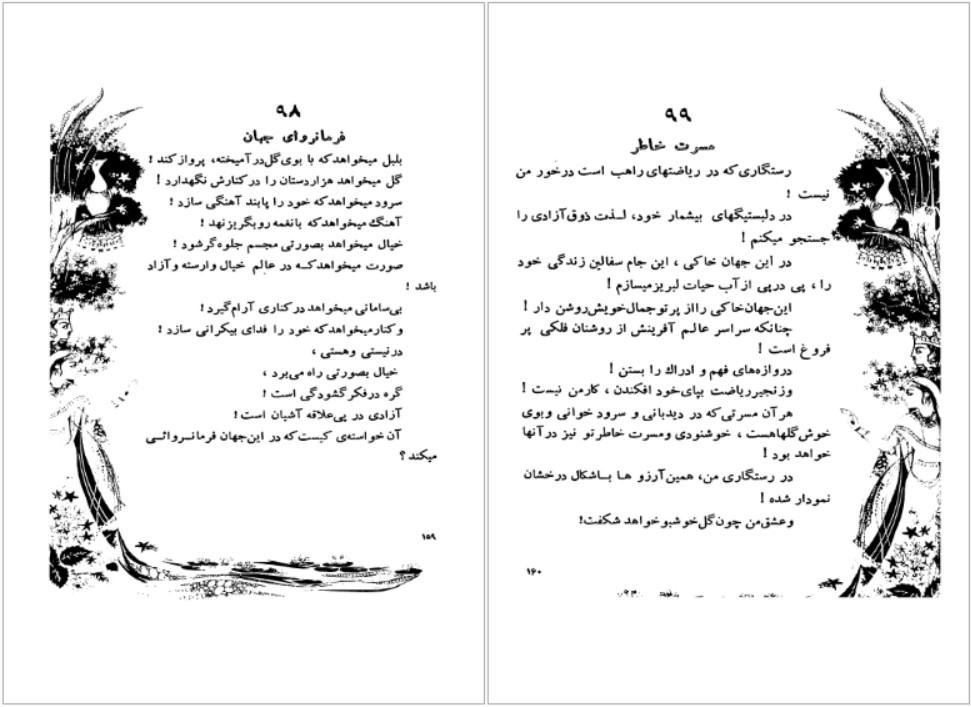 ۹۸
فرمانروای جهان
بلبل میخواهدکه با بوی‌گل‌درآمیخته، پروازکند !
گل میخواهد هزاردستان را درکنارش نگهدارد !
سرود میخواهدکه خود را پابند آهنگی سازد !
آهنگ میخواهدکه بانغمه روبگریز نهد !
خیال میخواهد بصورتی مجسم جلوه‌گرشود !
صورت میخواهدکه در عالم خیال وارسته وآزاد
باشد !
بی‌سامانی میخواهد درکناری آرام‌گیرد !
وکنارمیخواهدکه خود را فدای بیکرانی سازد !
درنیستی وهستی ،
خیال بصورتی راه می‌برد ،
گره درفکرگشودگی است !
آزادی در پی‌علاقه آشیان است !
آن خواسته‌ی کیست‌که در این‌جهان فرمانروائی
میکند ؟
۱۵۹
۹۹
مسرت خاطر
رستگاری‌که در ریاضتهای راهب است درخور من
نیست !
در دلبستگیهای بیشمار خود، لذت ذوق‌آزادی را
جستجو میکنم !
در این جهان خاکی ، این جام سفالین زندگی خود
را ، پی درپی از آب حیات لبریزمیسازم !
این‌جهان‌خاکی رااز پرتوجمال‌خویش‌روشن دار !
چنانکه سراسر عالم آفرینش از روشنان فلکی پر
فروغ است !
دروازه‌های فهم و ادراك را بستن !
وزنجیرریاضت بپای‌خود افکندن ، کارمن نیست !
هرآن مسرتی‌که در دیدبانی و سرود خوانی وبوی
خوش‌گلهاهست ، خوشنودی ومسرت خاطرتو نیز درآنها
خواهد بود !
در رستگاری من، همین‌آرزو ها باشکال درخشان
نمودار شده !
وعشق‌من چون‌گل‌خوشبوخواهد شکفت!
۱۶۰